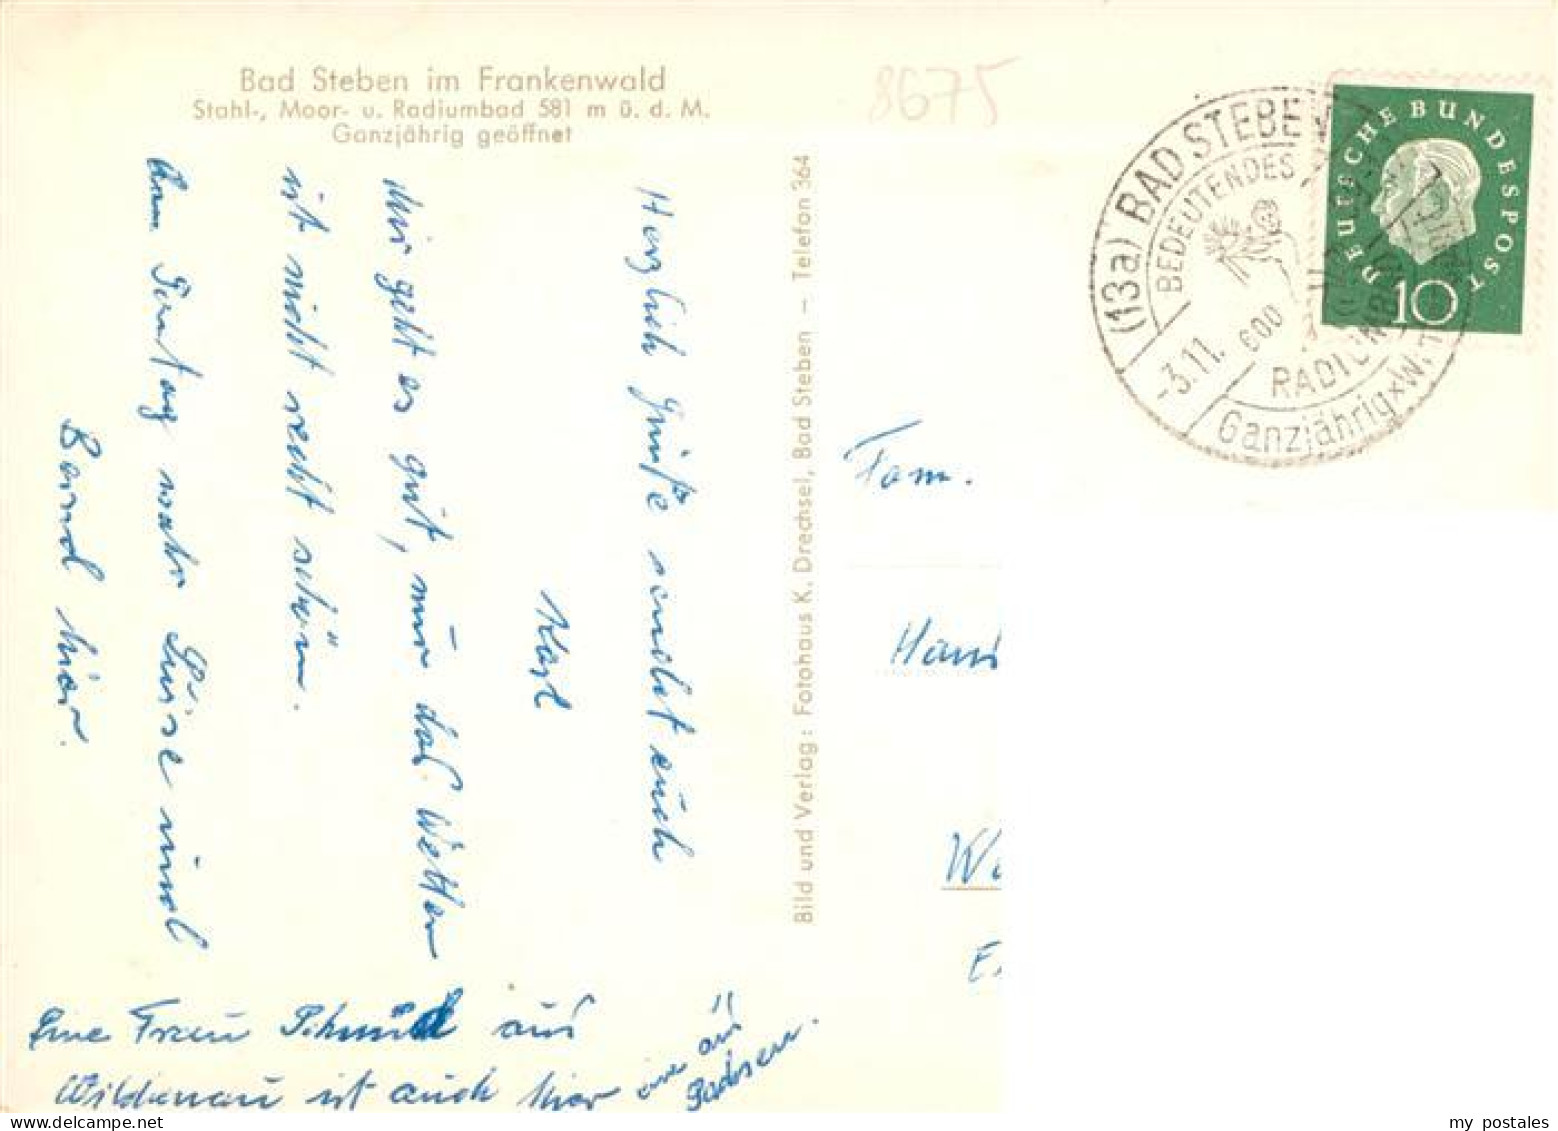 Bad Steben im Frankenwald
Stahl-, Moor- u. Radiumbad 581 m ü. d. M.
Ganzjährig geöffnet
8675
(13a) BAD STEBEN
BEDEUTENDES
-3.11. 600
RADIUMBAD
Ganzjährig × W.T.
DEUTSCHE BUNDESPOST
10
Herzlich Grüße sendet euch
Karl
Mir geht es gut, nur das Wetter
ist nicht recht schön.
Am Sonntag war Luise und
Bernd hier.
Eine Frau Schmidt aus
Wildenau ist auch hier
eine aus
Bild und Verlag: Fotohaus K. Drechsel, Bad Steben – Telefon 364
Fam.
Hans
my postales